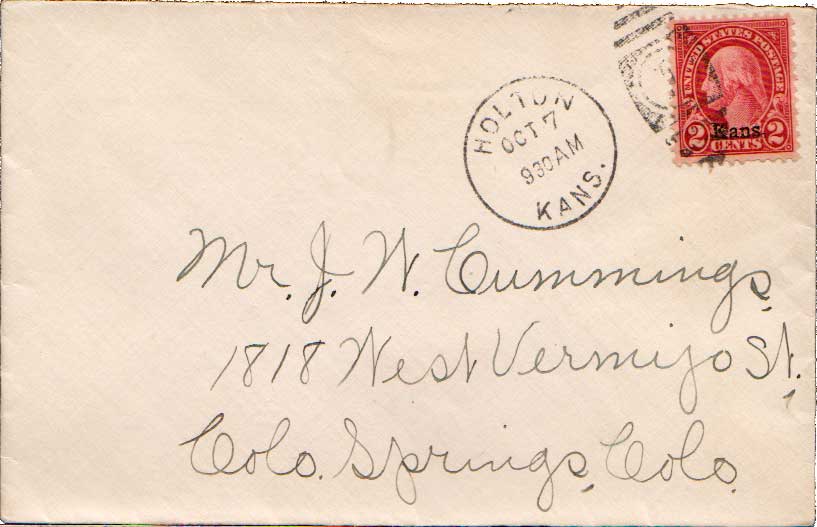 HOLTON
OCT 7
930 AM
KANS.
UNITED STATES POSTAGE
Kans.
2 CENTS 2
Mr. J. W. Cummings,
1818 West Vermijo St.,
Colo. Springs, Colo.